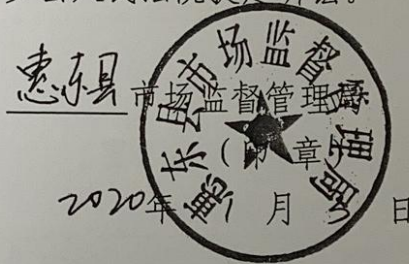 惠东县市场监督管理局
（印章）
2020年1月 日
惠东县市场监督管理局